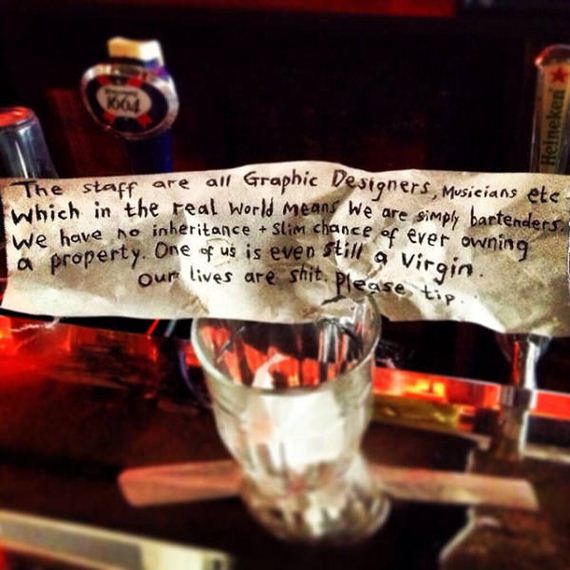 1664
Heineken
The staff are all Graphic Designers, Musicians etc
Which in the real world means we are simply bartenders.
We have no inheritance + slim chance of ever owning
a property. One of us is even still a virgin.
Our lives are shit. Please tip.